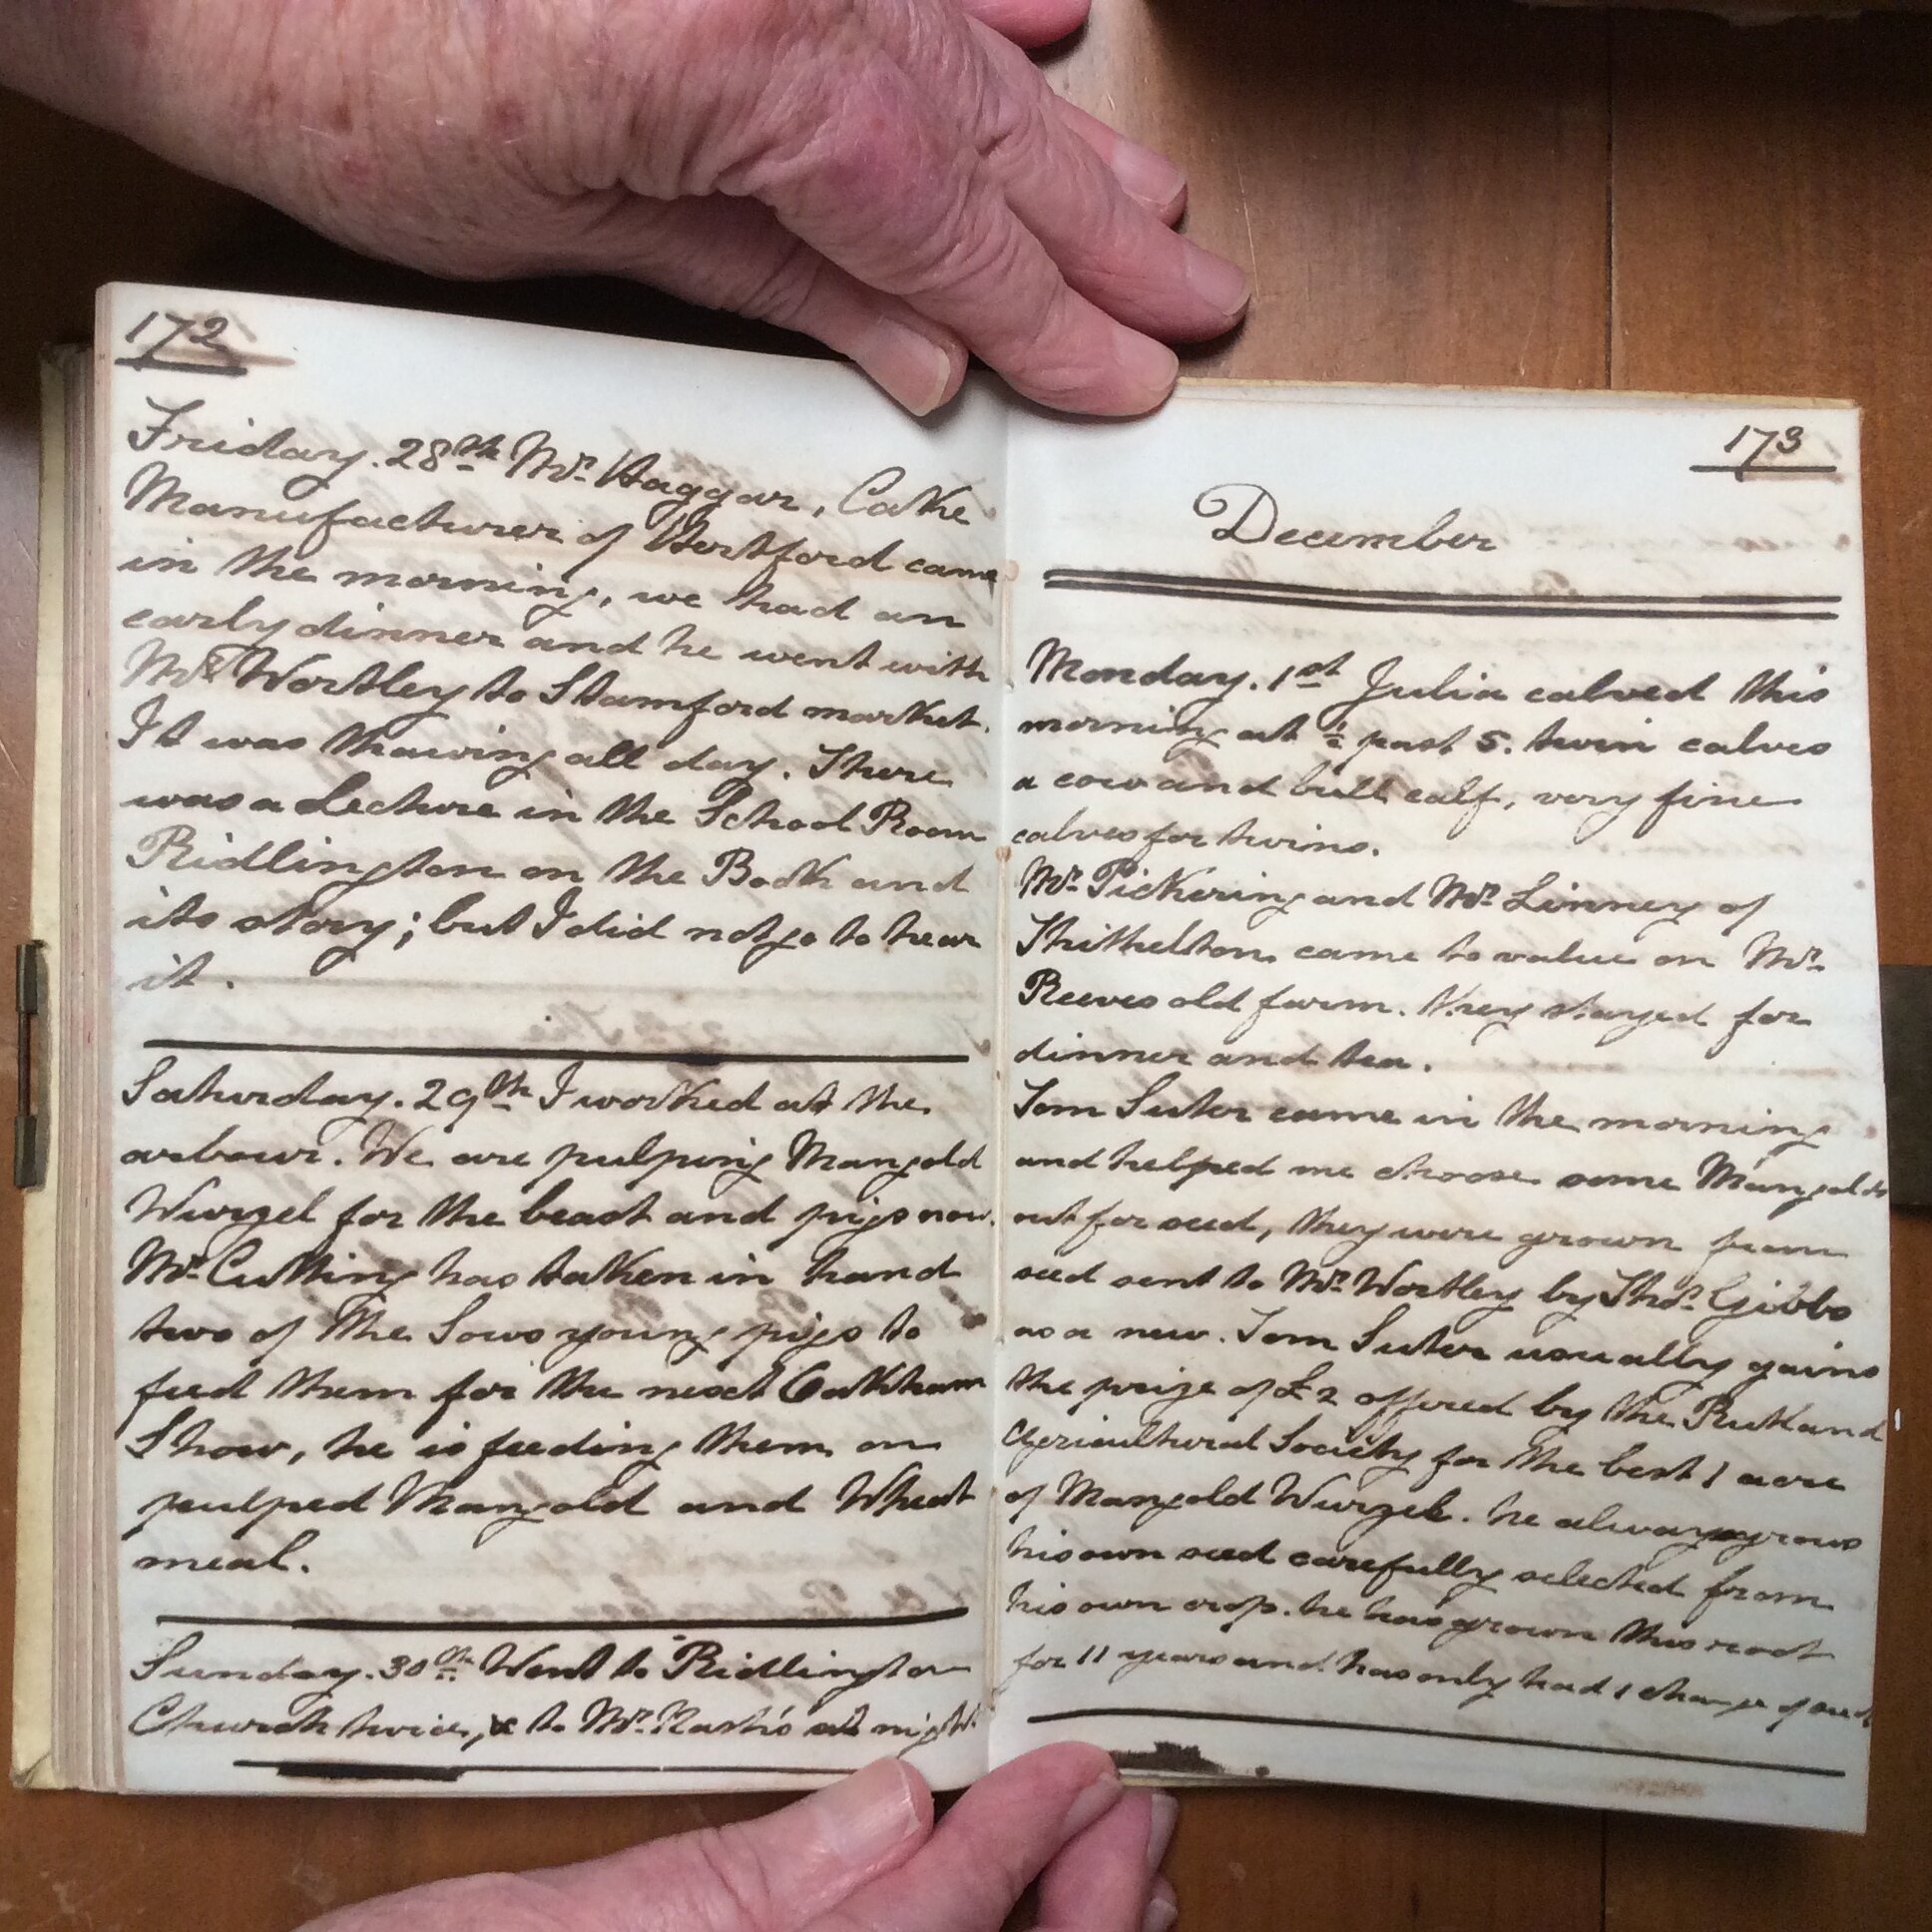 172
Friday. 28th Mr. Haggar, Cake
Manufacturer of Hertford came
in the morning, we had an
early dinner and he went with
Mr. Wortley to Stamford market.
It was thawing all day. There
was a Lecture in the School Room
Ridlington on the Book and
its story; but I did not go to hear
it.
Saturday. 29th I worked at the
arbour. We are pulping Mangold
Wurzel for the beast and pigs now.
Mr. Cutting has taken in hand
two of the Sows young pigs to
feed them for the next Oakham
Show, he is feeding them on
pulped Mangold and Wheat
meal.
Sunday. 30th Went to Ridlington
Church twice, & to Mr. Nash's at night.
173
December
Monday. 1st Julia calved this
morning at ½ past 5. twin calves
a cow and bull calf, very fine
calves for twins.
Mr. Pickering and Mr. Linney of
Thithelton came to value on Mr.
Reeves old farm. they stayed for
dinner and tea.
Tom Suter came in the morning
and helped me choose some Mangolds
out for seed, they were grown from
seed sent to Mr. Wortley by Thos. Gibbs
as a new. Tom Suter usually gains
the prize of £2 offered by the Rutland
Agricultural Society for the best 1 acre
of Mangold Wurzel. he always grows
his own seed carefully selected from
his own crop. he has grown this root
for 11 years and has only had 1 change of seed